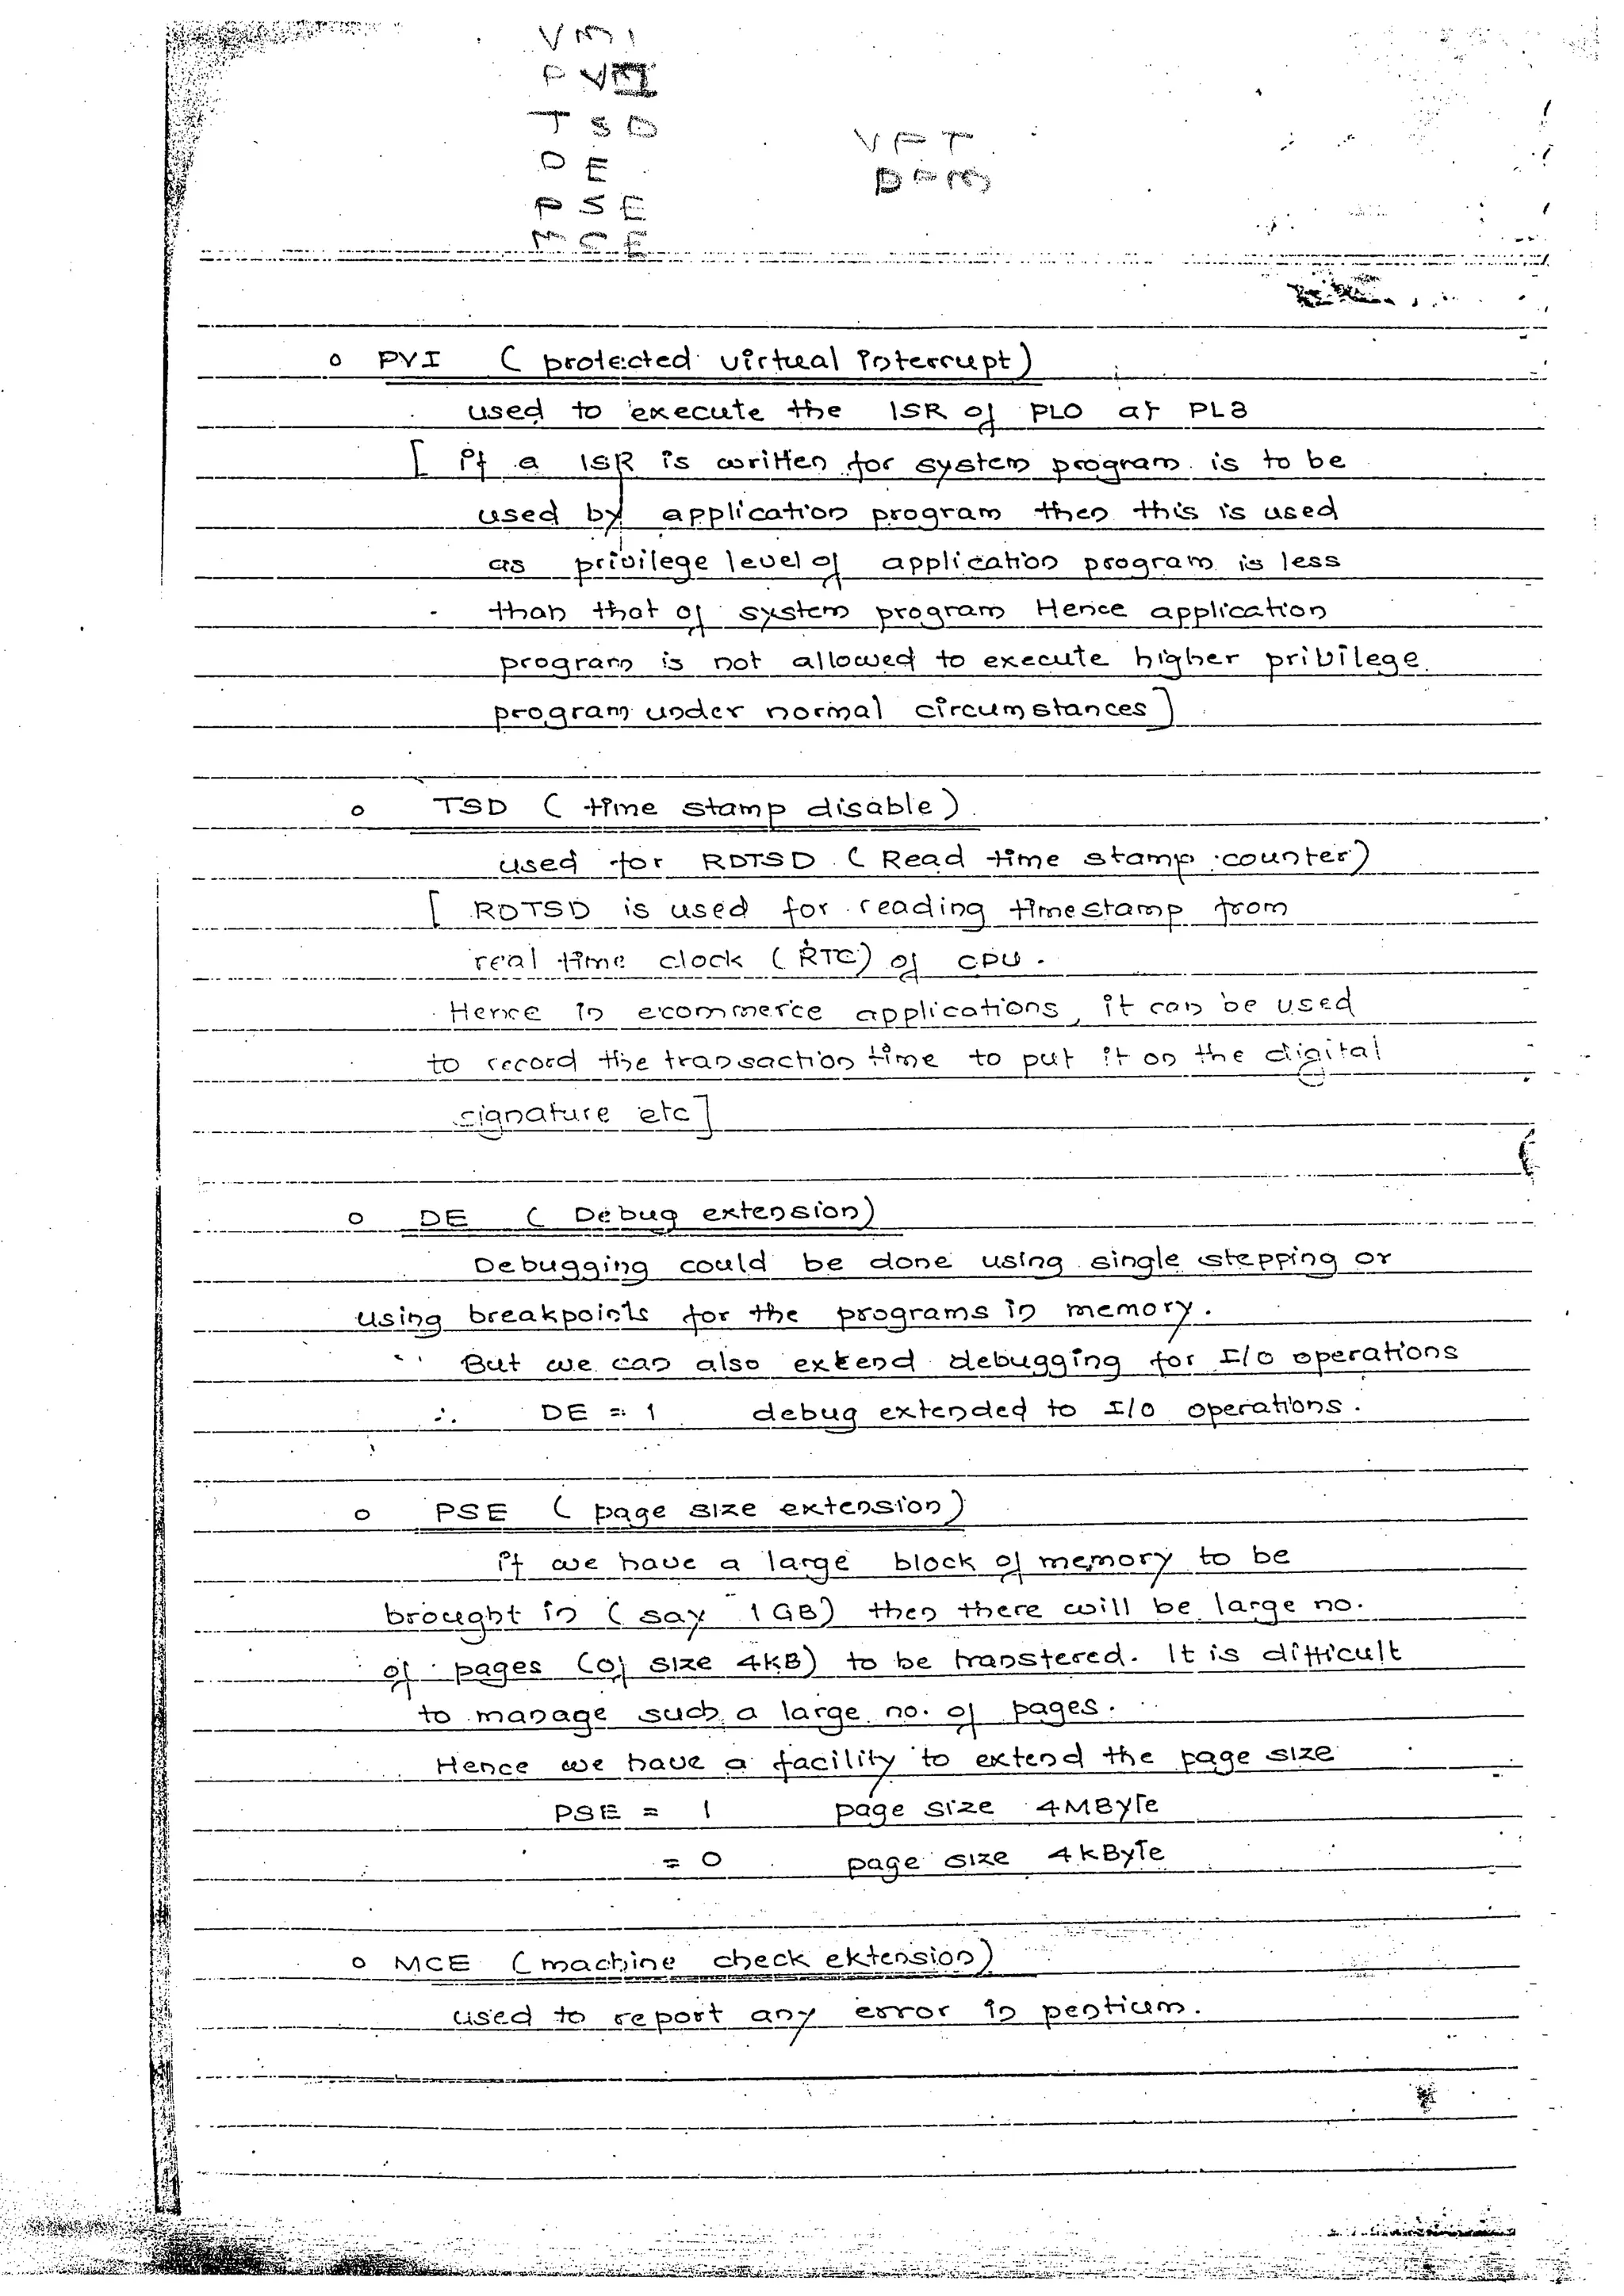 VMI
PVI
TSD
DE
PSE
MCE
VPT
DPM
o PVI ( protected virtual interrupt)
used to execute the ISR of PL0 at PL3
[ if a ISR is written for system program is to be
used by application program then this is used
as privilege level of application program is less
than that of system program Hence application
program is not allowed to execute higher privilege
program under normal circumstances]
o TSD ( time stamp disable)
used for RDTSD ( Read time stamp counter)
[ RDTSD is used for reading timestamp from
real time clock (RTC) of CPU.
Hence in ecommerce applications, it can be used
to record the transaction time to put it on the digital
signature etc]
o DE ( Debug extension)
Debugging could be done using single stepping or
using breakpoints for the programs in memory.
But we can also extend debugging for I/O operations
∴ DE = 1 debug extended to I/O operations.
o PSE ( page size extension)
if we have a large block of memory to be
brought in ( say 1GB) then there will be large no.
of pages (of size 4kB) to be transfered. It is difficult
to manage such a large no. of pages.
Hence we have a facility to extend the page size
PSE = 1 page size 4MByte
= 0 page size 4kByte
o MCE (machine check extension)
used to report any error in pentium.